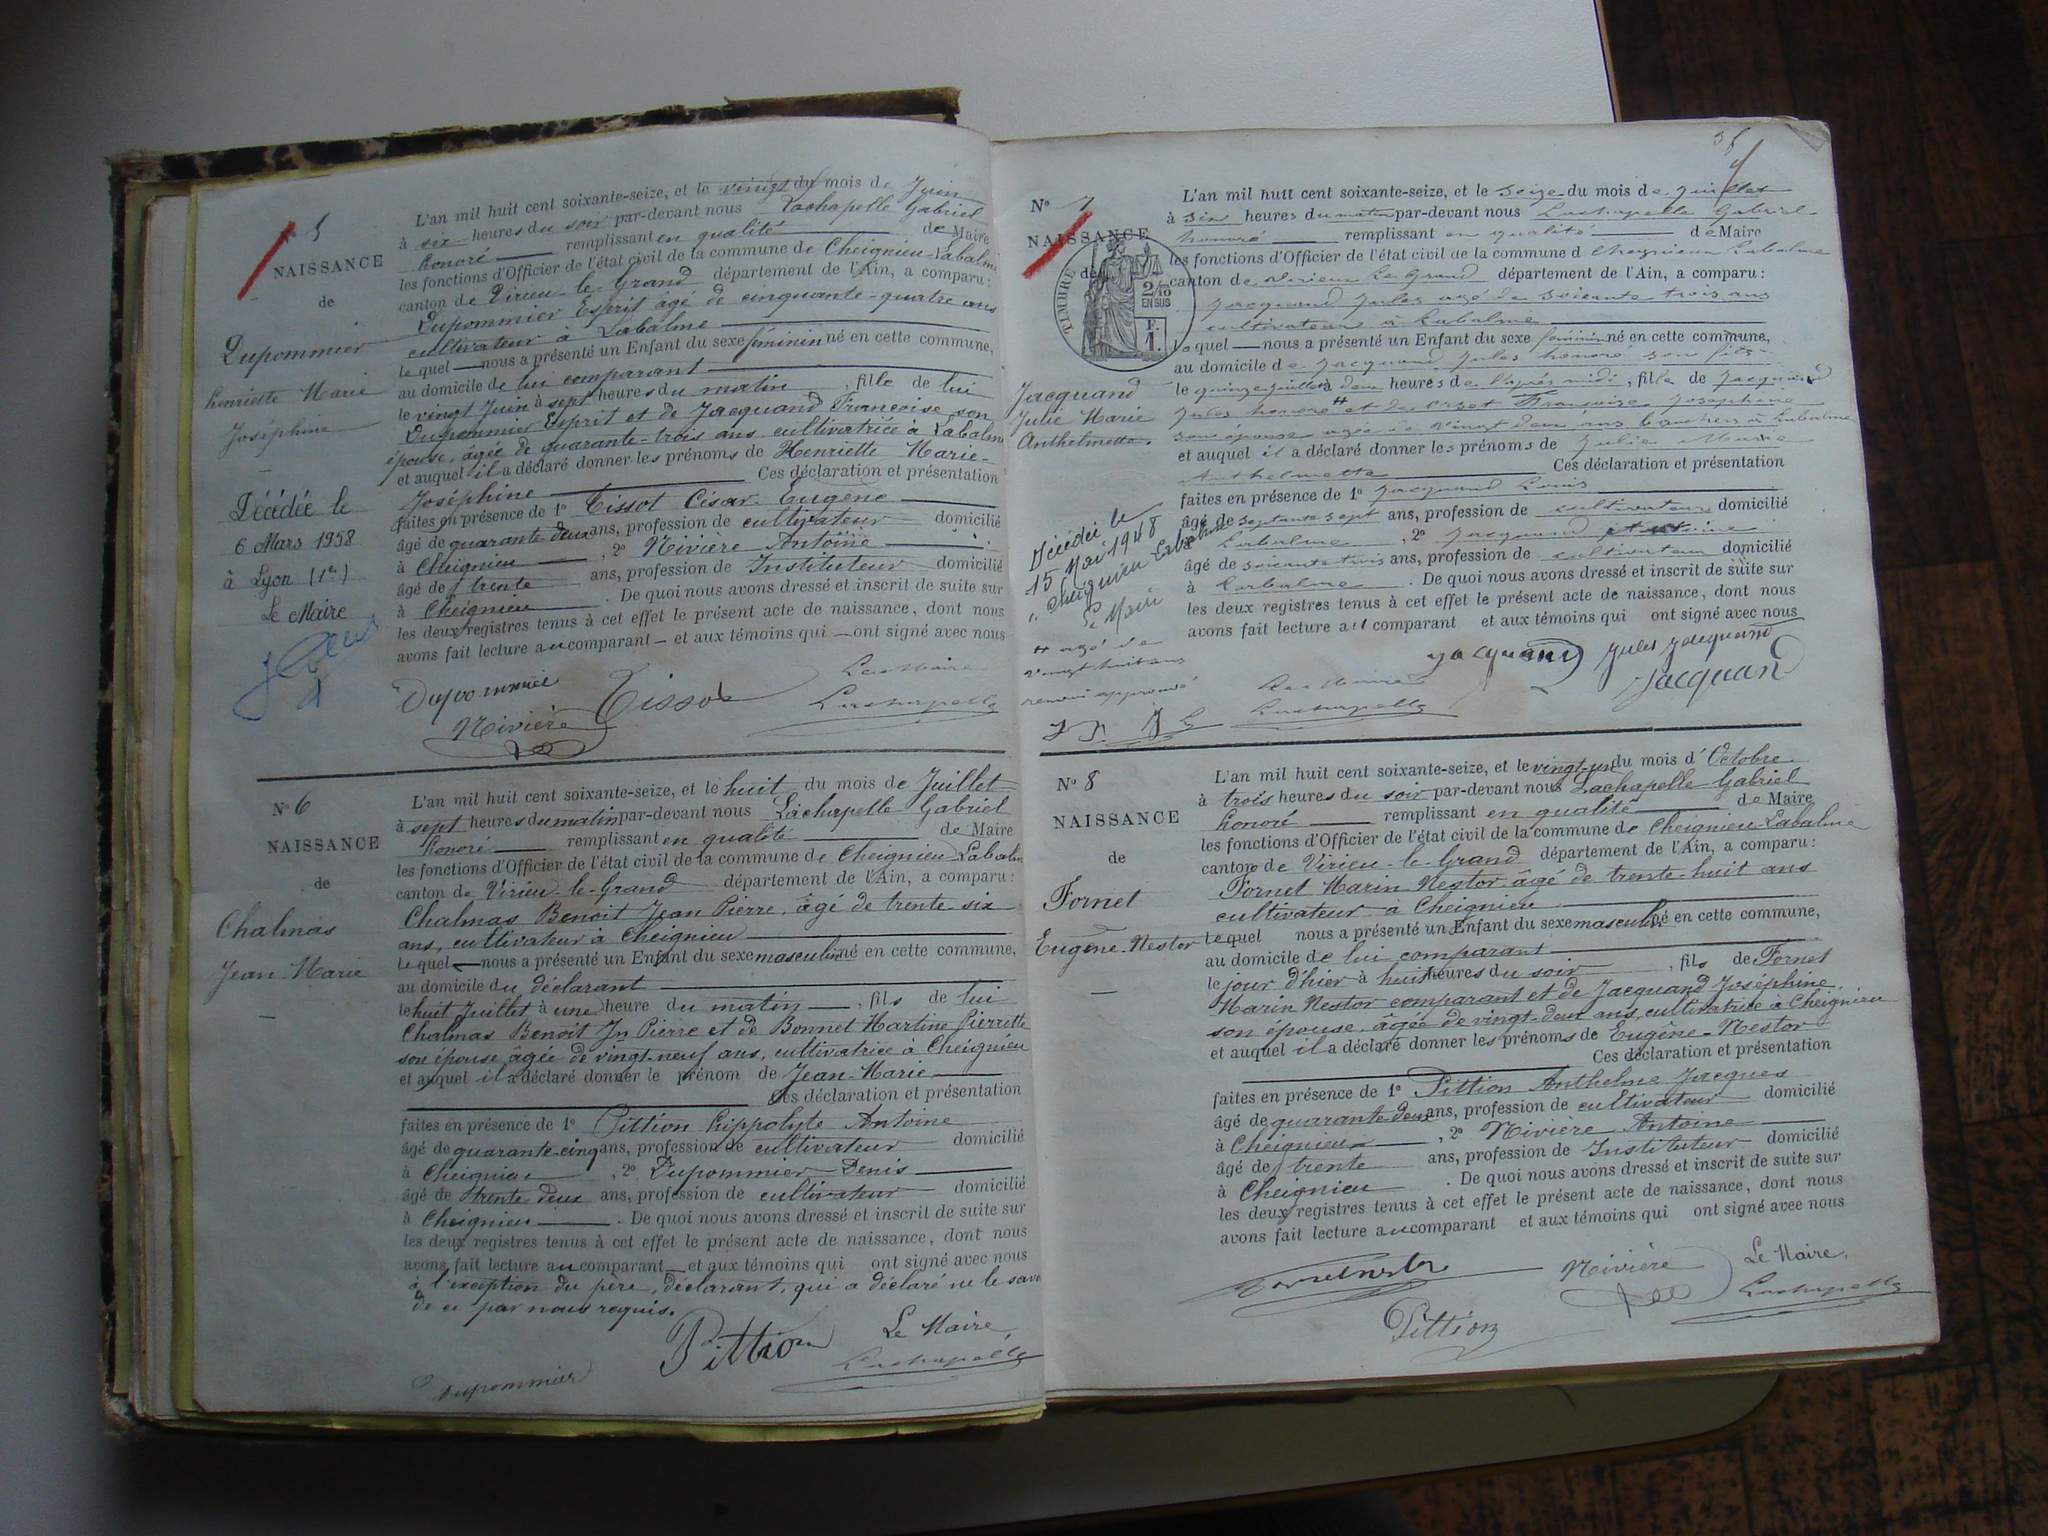 N° 5
NAISSANCE
de
Dupommier
Henriette Marie
Joséphine
Décédée le
6 Mars 1958
à Lyon (1er)
Le Maire
L'an mil huit cent soixante-seize, et le vingt du mois de Juin
à six heures du soir par-devant nous Lachapelle Gabriel
honoré remplissant en qualité de Maire
les fonctions d'Officier de l'état civil de la commune de Cheignieu-Labalme
canton de Virieu-le-Grand département de l'Ain, a comparu:
Dupommier Esprit âgé de cinquante-quatre ans
cultivateur à Labalme
Lequel nous a présenté un Enfant du sexe féminin né en cette commune,
au domicile de lui comparant
le vingt Juin à sept heures du matin, fille de lui
Dupommier Esprit et de Jacquand Françoise son
épouse, âgée de quarante-trois ans cultivatrice à Labalme
et auquel il a déclaré donner les prénoms de Henriette Marie-
Joséphine Ces déclaration et présentation
faites en présence de 1° Tissot César Eugène
âgé de quarante deux ans, profession de cultivateur domicilié
à Cheignieu, 2° Rivière Antoine
âgé de trente ans, profession de Instituteur domicilié
à Cheignieu. De quoi nous avons dressé et inscrit de suite sur
les deux registres tenus à cet effet le présent acte de naissance, dont nous
avons fait lecture au comparant et aux témoins qui ont signé avec nous
Dupommier Tissot Le Maire
Rivière Lachapelle
N° 6
NAISSANCE
de
Chalmas
Jean-Marie
L'an mil huit cent soixante-seize, et le huit du mois de Juillet
à sept heures du matin par-devant nous Lachapelle Gabriel
honoré remplissant en qualité de Maire
les fonctions d'Officier de l'état civil de la commune de Cheignieu-Labalme
canton de Virieu-le-Grand département de l'Ain, a comparu:
Chalmas Benoit Jean Pierre, âgé de trente-six
ans, cultivateur à Cheignieu
Lequel nous a présenté un Enfant du sexe masculin né en cette commune,
au domicile du déclarant
le huit Juillet à une heure du matin, fils de lui
Chalmas Benoit Jn Pierre et de Bonnet Martine Pierrette
son épouse âgée de vingt-neuf ans, cultivatrice à Cheignieu
et auquel il a déclaré donner le prénom de Jean-Marie
Ces déclaration et présentation
faites en présence de 1° Pittion Hippolyte Antoine
âgé de quarante-cinq ans, profession de cultivateur domicilié
à Cheignieu, 2° Dupommier Denis
âgé de trente deux ans, profession de cultivateur domicilié
à Cheignieu. De quoi nous avons dressé et inscrit de suite sur
les deux registres tenus à cet effet le présent acte de naissance, dont nous
avons fait lecture au comparant et aux témoins qui ont signé avec nous
à l'exception du père, déclarant, qui a déclaré ne le savoir
de ce par nous requis.
Pittion Le Maire
Dupommier Lachapelle
N° 7
NAISSANCE
de
TIMBRE
2/10
EN SUS
F.
1.
Jacquand
Julie Marie
Anthelmette.
Décédée le
15 Mai 1948
à Cheignieu Labalme
le Maire
# agé de
vingt huit ans
renvoi approuvé
L'an mil huit cent soixante-seize, et le seize du mois de juillet
à six heures du matin par-devant nous Lachapelle Gabriel
honoré remplissant en qualité de Maire
les fonctions d'Officier de l'état civil de la commune d Cheignieu Labalme
canton de Virieu Le Grand département de l'Ain, a comparu:
Jacquand Jules agé de soixante trois ans
cultivateur à Labalme
Lequel nous a présenté un Enfant du sexe féminin né en cette commune,
au domicile de Jacquand Jules honoré son fils
le quinze juillet à deux heures de l'après midi, fille de Jacquand
Jules honoré # et de Françoise Joséphine
son épouse agée de vingt deux ans à Labalme
et auquel il a déclaré donner les prénoms de Julie Marie
Anthelmette Ces déclaration et présentation
faites en présence de 1° Jacquand Louis
âgé de septante sept ans, profession de cultivateur domicilié
à Labalme, 2° Jacquand
âgé de soixante trois ans, profession de cultivateur domicilié
à Labalme. De quoi nous avons dressé et inscrit de suite sur
les deux registres tenus à cet effet le présent acte de naissance, dont nous
avons fait lecture au comparant et aux témoins qui ont signé avec nous
Jacquand Jules Jacquand
Le Maire Jacquand
Lachapelle
N° 8
NAISSANCE
de
Fornet
Eugène-Nestor
L'an mil huit cent soixante-seize, et le vingt-un du mois d'Octobre
à trois heures du soir par-devant nous Lachapelle Gabriel
honoré remplissant en qualité de Maire
les fonctions d'Officier de l'état civil de la commune de Cheignieu-Labalme
canton de Virieu-le-Grand département de l'Ain, a comparu:
Fornet Marin-Nestor, âgé de trente-huit ans
cultivateur à Cheignieu
Lequel nous a présenté un Enfant du sexe masculin né en cette commune,
au domicile de lui comparant
le jour d'hier à huit heures du soir, fils de Fornet
Marin Nestor comparant et de Jacquand Joséphine
son épouse, âgée de vingt-deux ans, cultivatrice à Cheignieu
et auquel il a déclaré donner les prénoms de Eugène-Nestor
Ces déclaration et présentation
faites en présence de 1° Pittion Anthelme Jacques
âgé de quarante deux ans, profession de cultivateur domicilié
à Cheignieu, 2° Rivière Antoine
âgé de trente ans, profession de Instituteur domicilié
à Cheignieu. De quoi nous avons dressé et inscrit de suite sur
les deux registres tenus à cet effet le présent acte de naissance, dont nous
avons fait lecture au comparant et aux témoins qui ont signé avec nous
Rivière Le Maire,
Pittion Lachapelle